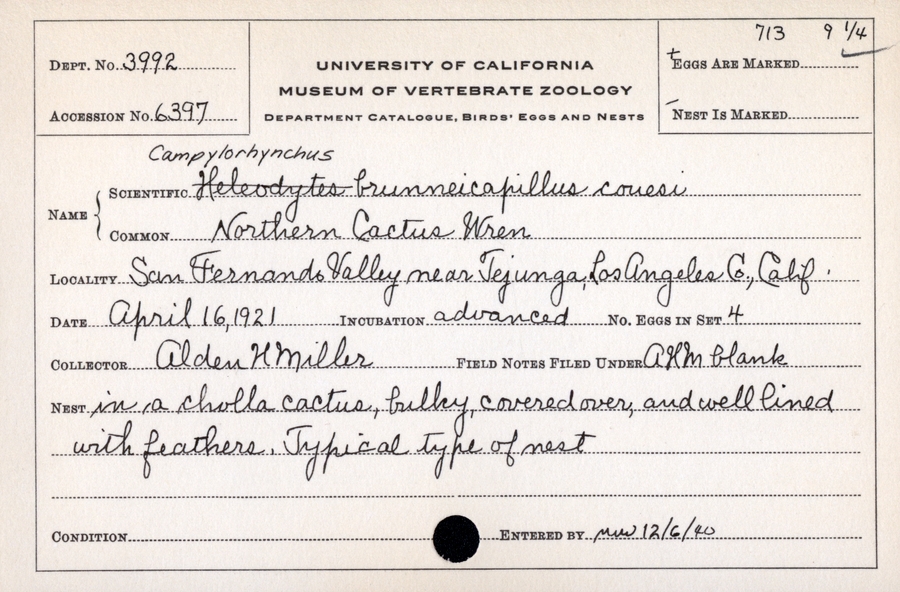 713 9 1/4
DEPT. No. 3992
UNIVERSITY OF CALIFORNIA
+ EGGS ARE MARKED
MUSEUM OF VERTEBRATE ZOOLOGY
ACCESSION No. 6397
DEPARTMENT CATALOGUE, BIRDS' EGGS AND NESTS
- NEST IS MARKED
Campylorhynchus
NAME
SCIENTIFIC Heleodytes brunneicapillus couesi
COMMON Northern Cactus Wren
LOCALITY San Fernando Valley near Tejunga, Los Angeles Co., Calif.
DATE April 16, 1921 INCUBATION advanced No. EGGS IN SET 4
COLLECTOR Alden H Miller FIELD NOTES FILED UNDER AHM blank
NEST in a cholla cactus, bulky, covered over, and well lined
with feathers. Typical type of nest
CONDITION ENTERED BY 12/6/40